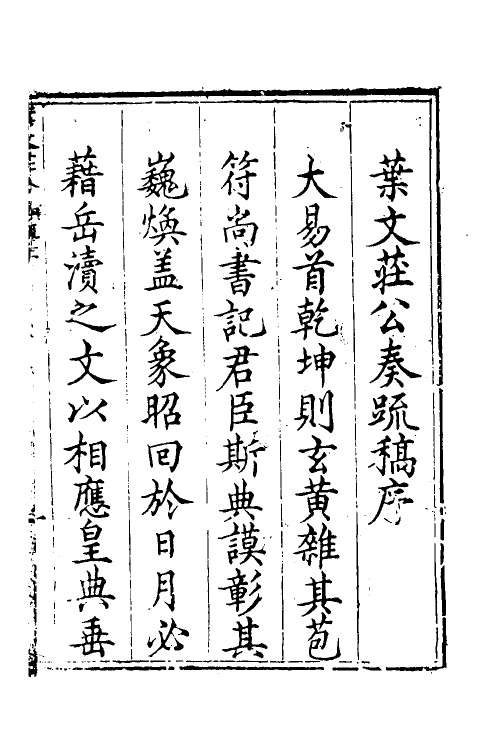 葉文莊公奏疏稿序
大易首乾坤則玄黄雜其苞
符尚書記君臣斯典謨彰其
巍煥盖天象昭回於日月必
藉岳瀆之文以相應皇典垂